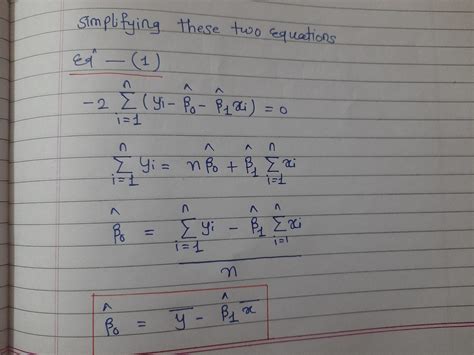 simplifying these two equations
Eqⁿ — (1)
-2 ∑_{i=1}^{n} (yi - β̂₀ - β̂₁xi) = 0
∑_{i=1}^{n} yi = nβ̂₀ + β̂₁ ∑_{i=1}^{n} xi
β̂₀ = (∑_{i=1}^{n} yi - β̂₁ ∑_{i=1}^{n} xi) / n
β̂₀ = y̅ - β̂₁x̅